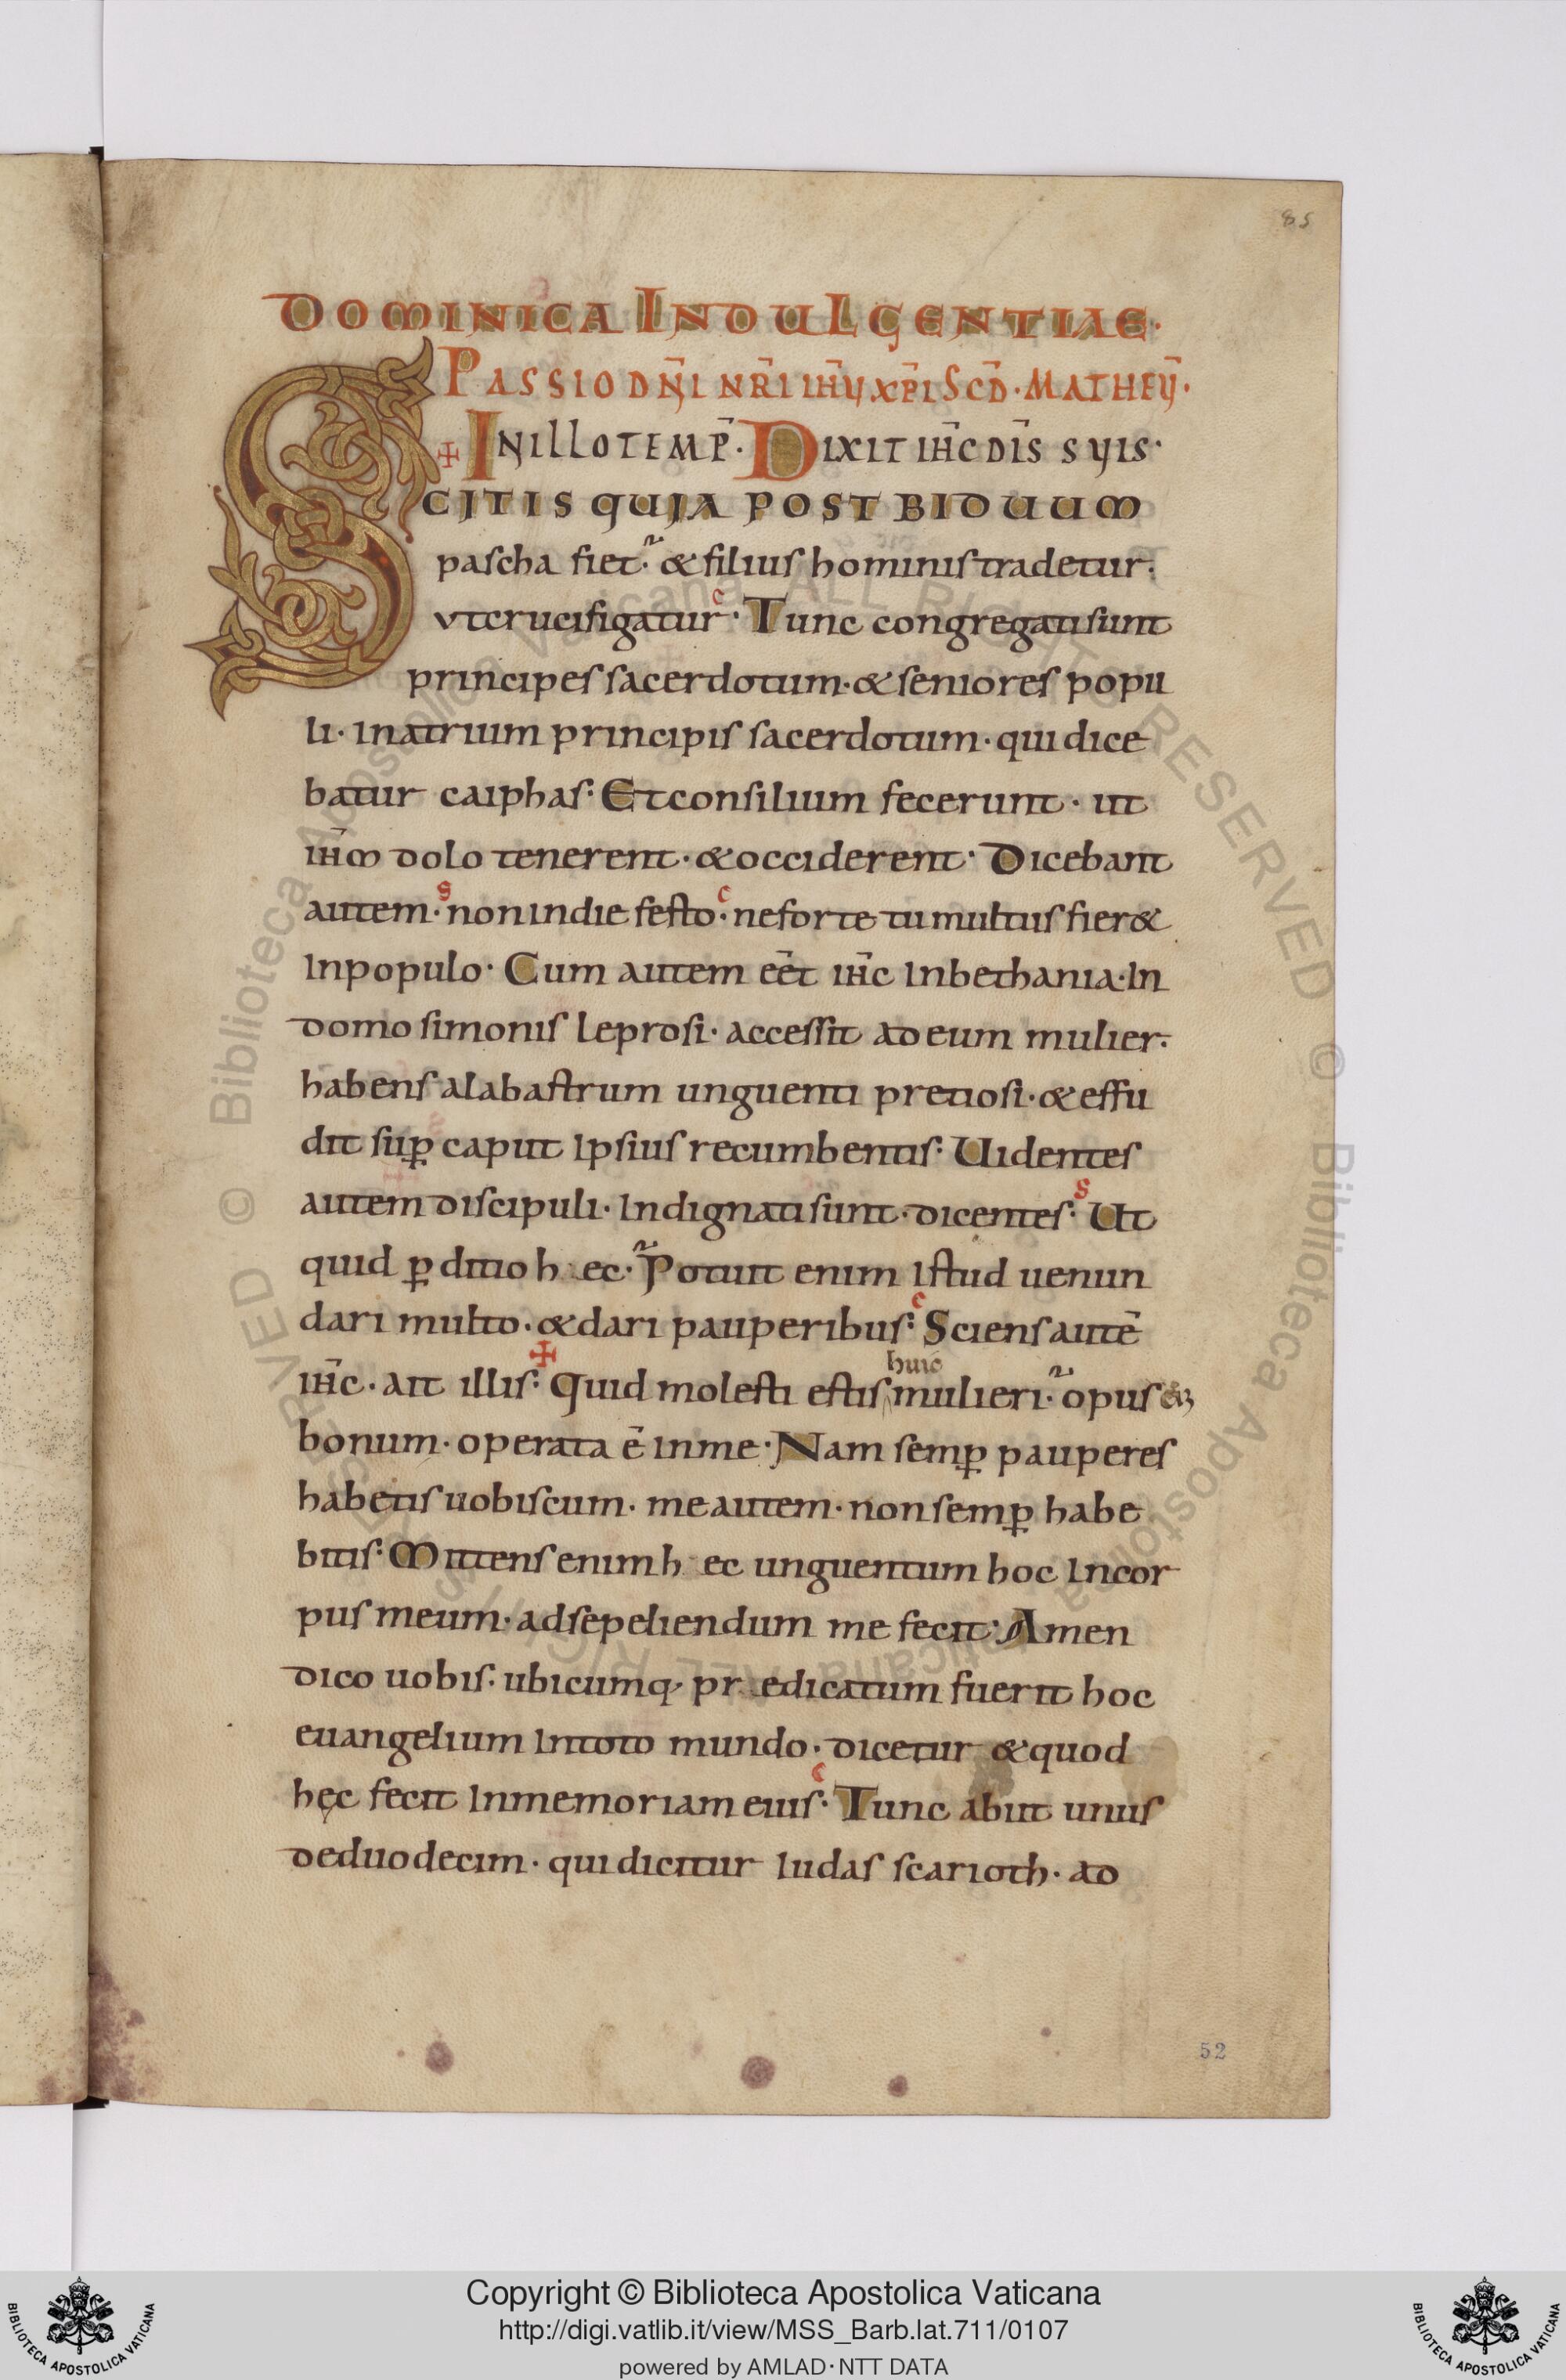 85
DOMINICA INDULGENTIAE·
PASSIO DN̄I NR̄I IH̄Y XP̄I SCD̄· MATHEY̅·
✠ IN ILLO TEMP̄· DIXIT IH̄C DIS̄ SUIS·
SCITIS QUIA POST BIDUUM
pascha fiet· & filius hominis tradetur·
ut crucifigatur c· Tunc congregati sunt
principes sacerdotum· & seniores popu
li· in atrium principis sacerdotum· qui dice
batur caiphas: Et consilium fecerunt· ut
ih̄m dolo tenerent· & occiderent· Dicebant
autem· s non in die festo· c ne forte tumultus fier&
in populo· Cum autem eēt ih̄c in bethania· in
domo simonis leprosi· accessit ad eum mulier·
habens alabastrum unguenti pretiosi· & effu
dit sup̱ caput ipsius recumbentis: Uidentes
autem discipuli· indignati sunt· dicentes· s Ut
quid p̱ditio h ec· Potuit enim istud uenun
dari multo· & dari pauperibus: c Sciens autē
ih̄c· ait illis: ✠ Quid molesti estis huic mulieri· opus
bonum· operata ē in me· Nam semp̱ pauperes
habetis uobiscum· me autem· non semp̱ habe
bitis: Mittens enim h ec unguentum hoc in cor
pus meum· ad sepeliendum me fecit: Amen
dico uobis· ubicumq· pr edicatum fuerit hoc
euangelium in toto mundo· dicetur & quod
hęc fecit in memoriam eius· c Tunc abiit unus
de duodecim· qui dicitur iudas scarioth· ad
52
© Biblioteca Apostolica Vaticana ALL RIGHTS RESERVED © Biblioteca Apostolica Vaticana ALL RIGHTS RESERVED
Copyright © Biblioteca Apostolica Vaticana
http://digi.vatlib.it/view/MSS_Barb.lat.711/0107
powered by AMLAD·NTT DATA
BIBLIOTECA APOSTOLICA VATICANA
BIBLIOTECA APOSTOLICA VATICANA